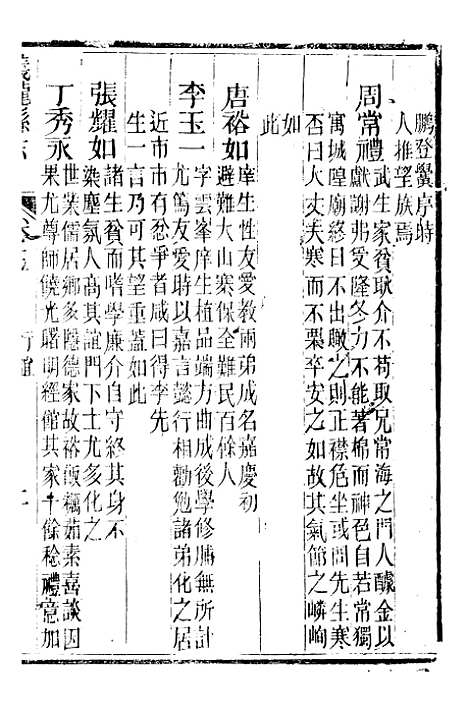 鵬登黌序時
人推望族焉
周常禮武生家貧耿介不苟取兄常海之門人醵金以
獻謝弗受隆冬力不能著棉而神色自若常獨
寓城隍廟終日不出瞰之則正襟危坐或問先生寒
否曰大丈夫寒而不栗卒安之如故其氣節之嶙峋
如
此
唐裕如庠生性友愛教兩弟成名嘉慶初
避難大山寨保全難民百餘人
李玉一字雲峯庠生植品端方曲成後學修脯無所計
尤篤友愛時以嘉言懿行相勸勉諸弟化之居
近市市有忿爭者咸曰得李先
生一言乃可其望重蓋如此
張耀如諸生貧而嗜學廉介自守終其身不
染塵氛人高其誼門下士尤多化之
丁秀永世業儒居鄉多隱德家故裕飯糲茹素喜談因
果尤尊師饒光曙明經館其家十餘稔禮意加
儀隴縣志
行誼